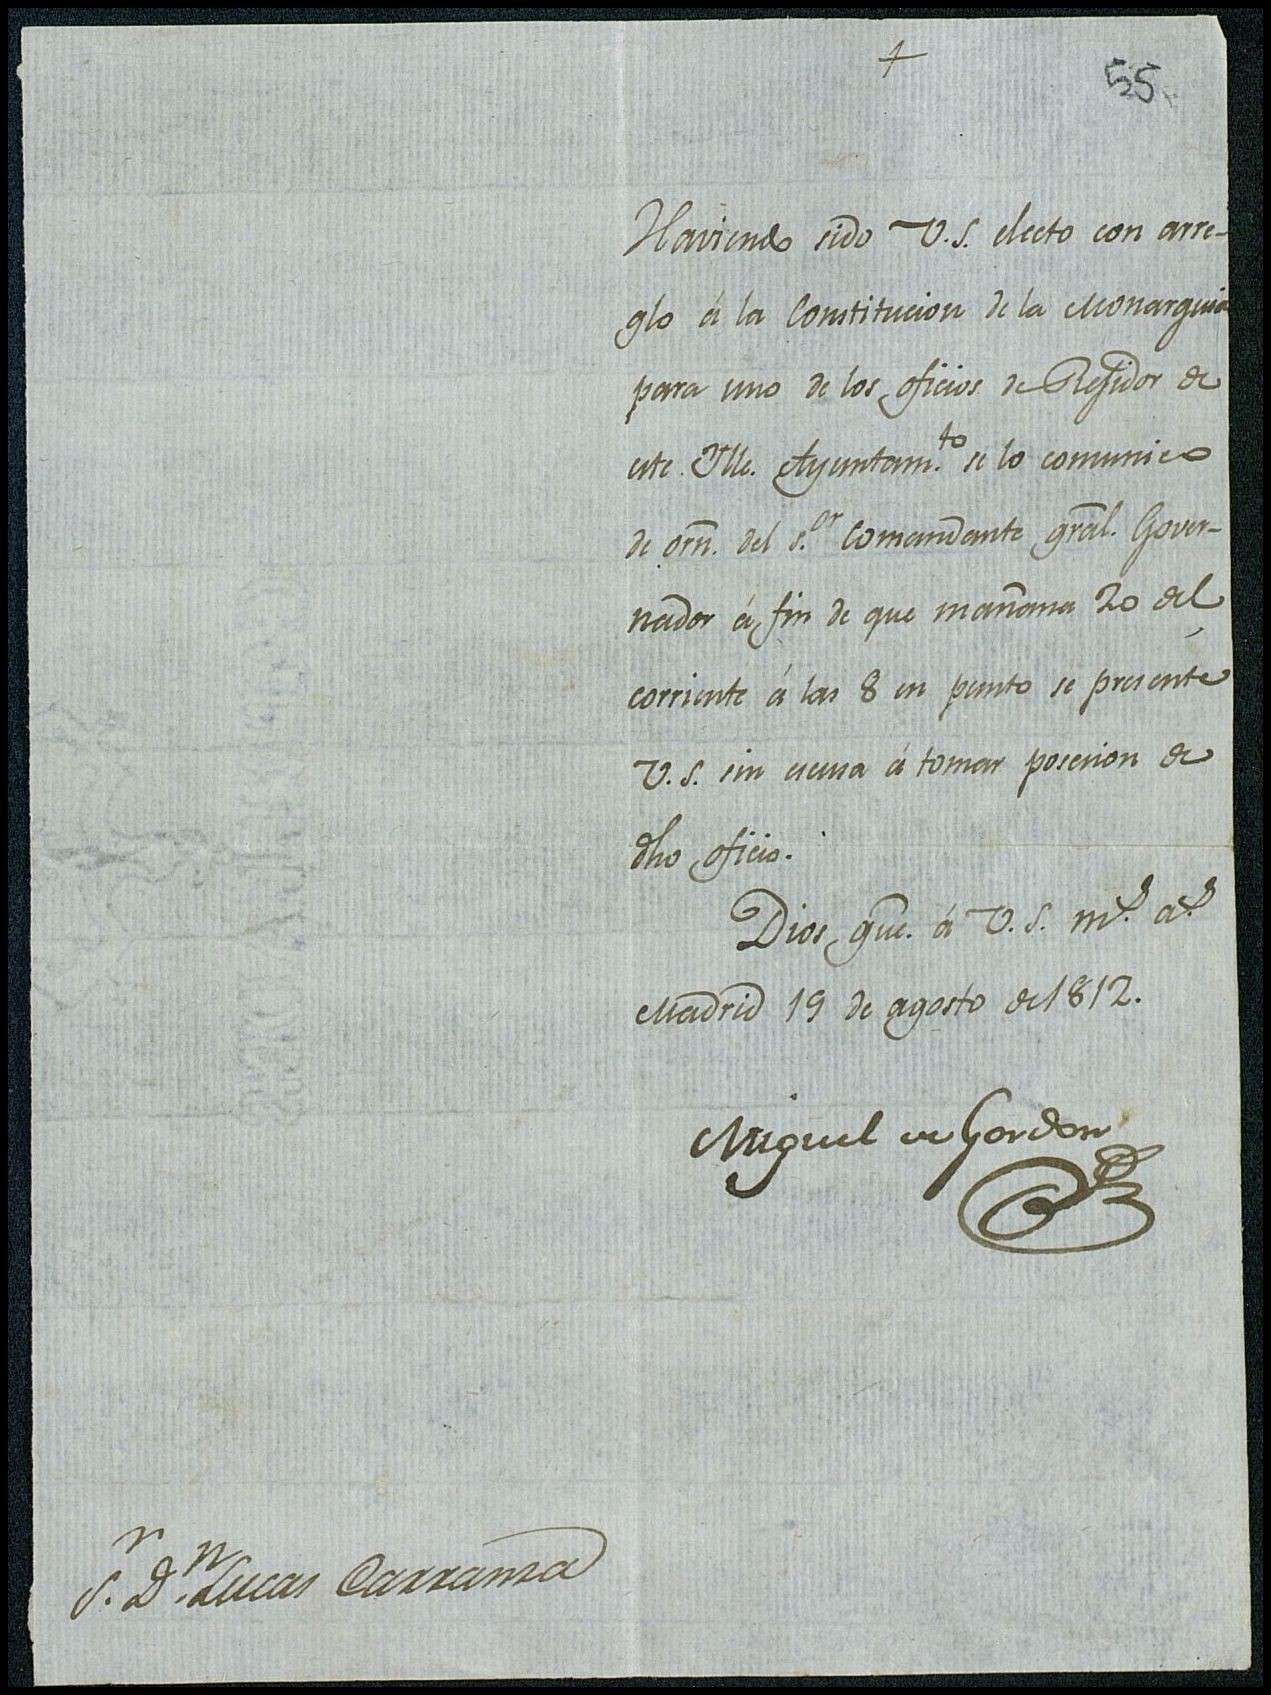 55
Haviendo sido V.S. electo con arre-
glo á la Constitucion de la Monarquia
para uno de los oficios de Regidor de
este Ylle. Ayuntam.to se lo comunico
de orn. del s.or Comandante gral. Gover-
nador á fin de que mañana 20 del
corriente á las 8 en punto se presente
V.S. sin escusa á tomar posesion de
dho oficio.
Dios gue. á V.S. m.s a.s
Madrid 19 de agosto de 1812.
Miguel de Gordon
S.r D.n Lucas Carranza